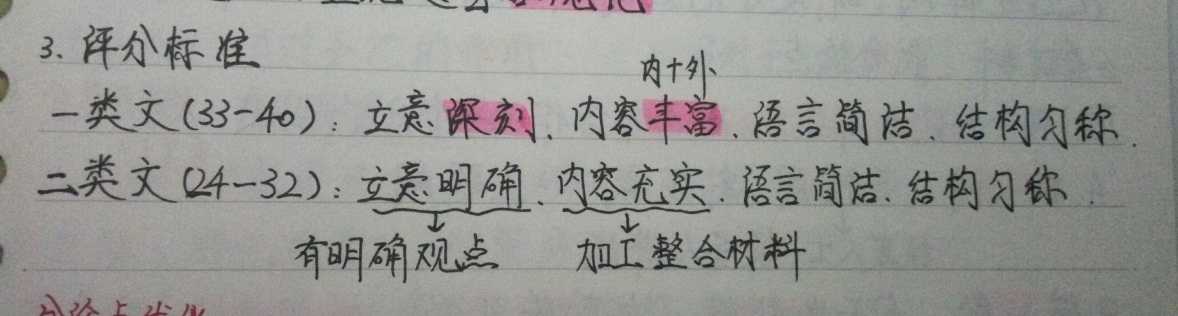 3. 评分标准
内+外
一类文(33-40): 立意深刻、内容丰富、语言简洁、结构匀称.
二类文(24-32): 立意明确、内容充实、语言简洁、结构匀称.
有明确观点 加工整合材料